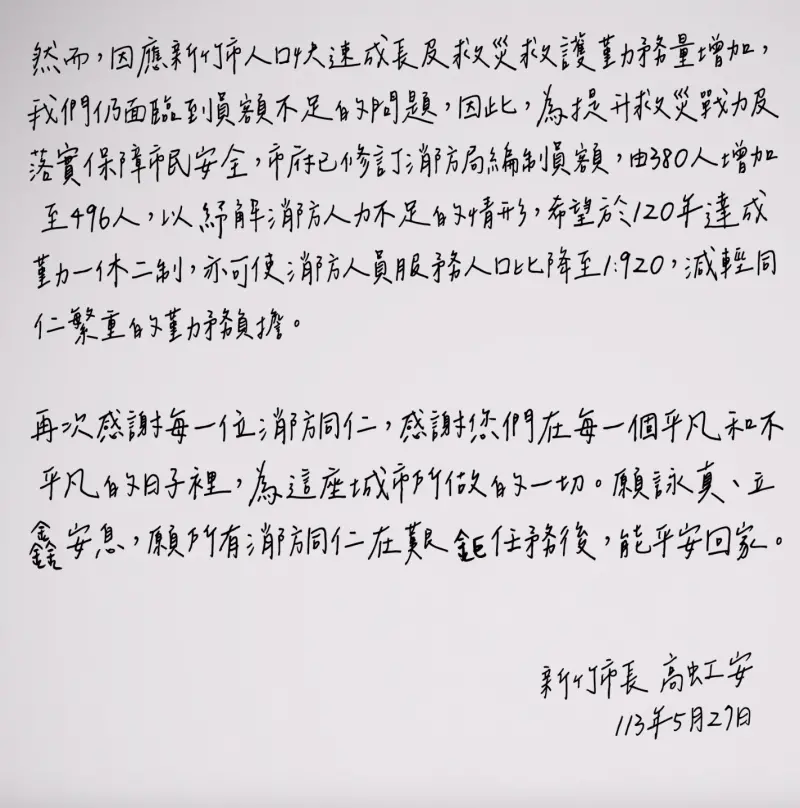 然而，因應新竹市人口快速成長及救災救護勤務量增加，
我們仍面臨到員額不足的問題，因此，為提升救災戰力及
落實保障市民安全，市府已修訂消防局編制員額，由380人增加
至496人，以紓解消防人力不足的情形，希望於120年達成
勤一休二制，亦可使消防人員服務人口比降至1:920，減輕同
仁繁重的勤務負擔。
再次感謝每一位消防同仁，感謝您們在每一個平凡和不
平凡的日子裡，為這座城市所做的一切。願詠真、立
鑫安息，願所有消防同仁在艱鉅任務後，能平安回家。
新竹市長 高虹安
113年5月27日